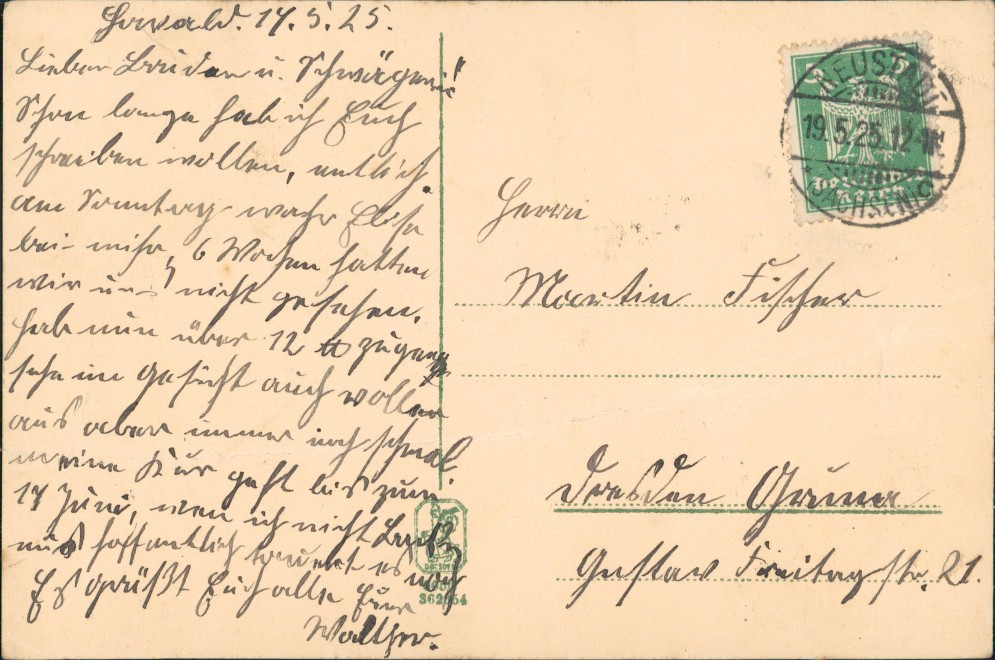 Howald. 17.5.25.
Lieber Bruder u. Schwägerin!
Schon lange hab ich Euch
schreiben wollen, entlich
am Sonntag wahr Elise
bei mihr, 6 Wochen hatten
wir uns nicht gesehen.
hab nun über 12 ℔ zugen.
sehe im Gesicht auch voller
aus aber immer noch schmal
meine Kur geht bis zum
17 Juni, wen ich nicht
mus hoffentlich dauert es noch
Es grüßt Euch alle Euer
Walther.
DRESDEN
362654
NEUSTADT
19.5.25.12-
SACHSEN
5
Herrn
Martin Fischer
Dresden Gruna
Gustav Freitagstr. 21.